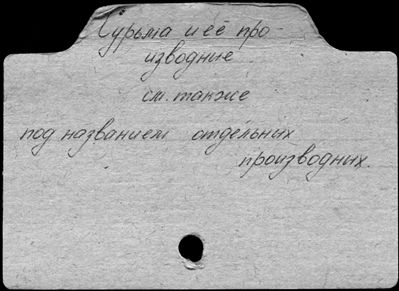 Сурьма и её про-
изводные
см. также
под названием отдельных
производных.